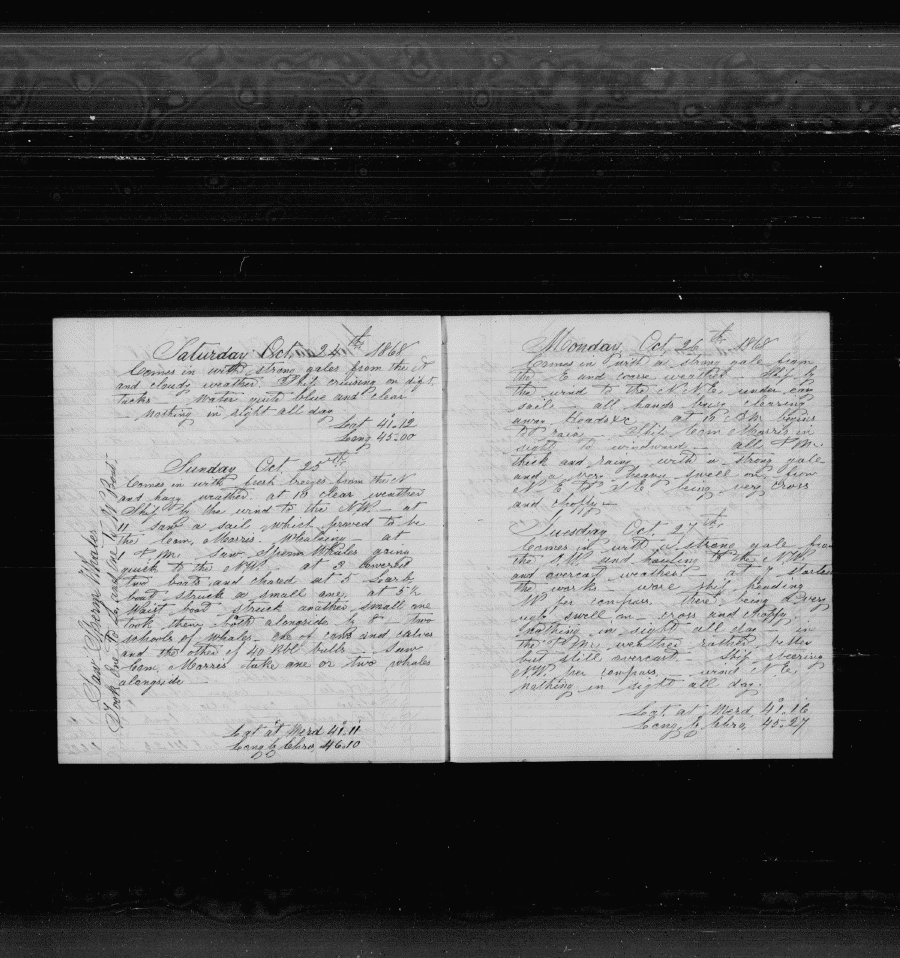 Saturday Oct. 24th 1868
Comes in with strong gales from the N
and cloudy weather. Ship cruising on diff.
tacks — Water quite blue and clear
nothing in sight all day
Lat 41°.12
Long 45-00
Sunday Oct. 25th
Comes in with fresh breizes from the N
and hazy weather. at 10 clear weather
Ship by the wind to the NW — at
11 saw a sail, which proved to be
the Com. Morris — Whaleing — at
P.M. Saw Sperm Whales going
quick to the NW. at 3 lowered
two boats and chased at 5 Larb.
boat struck a small one, at 5½
Waist boat struck another small one
took them both alongside by 8 — two
schools of whales — one of cows and calves
and the other of 40 bbl bulls — Saw
Com. Morris take one or two whales
alongside
Lat at Merd 41°.11
Long by Chro, 46.10
Saw Sperm Whales
Took one to L.B. and one to W Boat.
Monday, Oct, 26th 1868
Comes in with a strong gale from
the E and coarse weather. Ship by
the wind to the N.N.E. under easy
sail — all hands busy clearing
away Heads &c. at 10 A.M. begins
to rain — Ship Com Morris in
sight to windward — all P.M.
thick and rainy with a strong gale
and a very heavy swell on from
N.E. being very cross
and choppy —
Tuesday Oct 27th
Comes in with a strong gale from
the S.W. and hauling to the N.W.
and overcast weather. — at 7 started
the works — wore ship heading
W per compass, there being a very
ugly swell on — cross and choppy
nothing in sight all day — in
the P.M. weather rather better
but still overcast. Ship steering
NW. per compass — wind N.E.
nothing in sight all day.
Lat at Merd, 41°.16
Long by Chro, 45-27